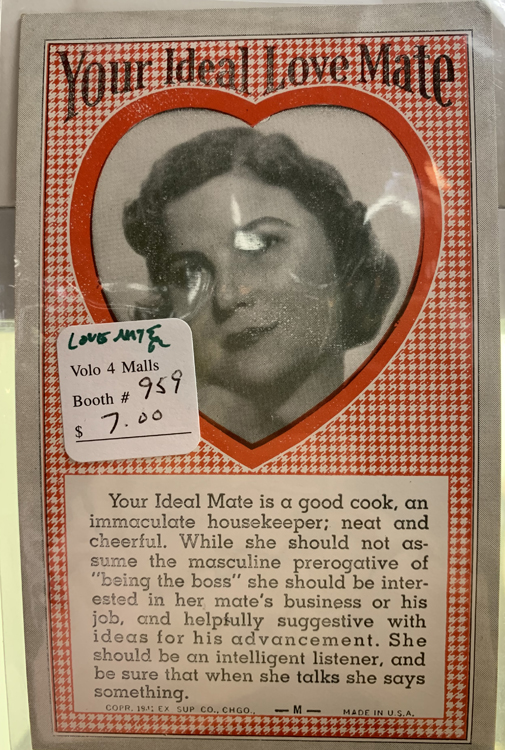 Your Ideal Love Mate
LOVE MATE
Volo 4 Malls
Booth # 959
$ 7.00
Your Ideal Mate is a good cook, an
immaculate housekeeper; neat and
cheerful. While she should not as-
sume the masculine prerogative of
"being the boss" she should be inter-
ested in her mate's business or his
job, and helpfully suggestive with
ideas for his advancement. She
should be an intelligent listener, and
be sure that when she talks she says
something.
COPR. EX SUP CO., CHGO., —M— MADE IN U.S.A.